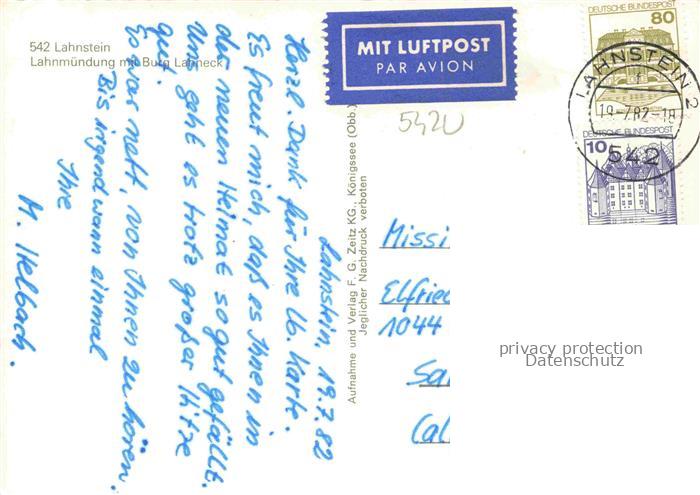 542 Lahnstein
Lahnmündung mit Burg Lahneck
MIT LUFTPOST
PAR AVION
DEUTSCHE BUNDESPOST
80
LAHNSTEIN 2
19.-7.82-18
542
DEUTSCHE BUNDESPOST
10
5420
Lahnstein, 19.7.82
Herzl. Dank für Ihre lb. Karte.
Es freut mich, daß es Ihnen in
der neuen Heimat so gut gefällt.
Uns geht es trotz großer Hitze
gut.
Es war nett, von Ihnen zu hören.
Bis irgendwann einmal
Ihre
M. Helbach.
Aufnahme und Verlag F. G. Zeitz KG., Königssee (Obb.)
Jeglicher Nachdruck verboten
Missi
Elfrie
1044
Sa
Cal
privacy protection
Datenschutz